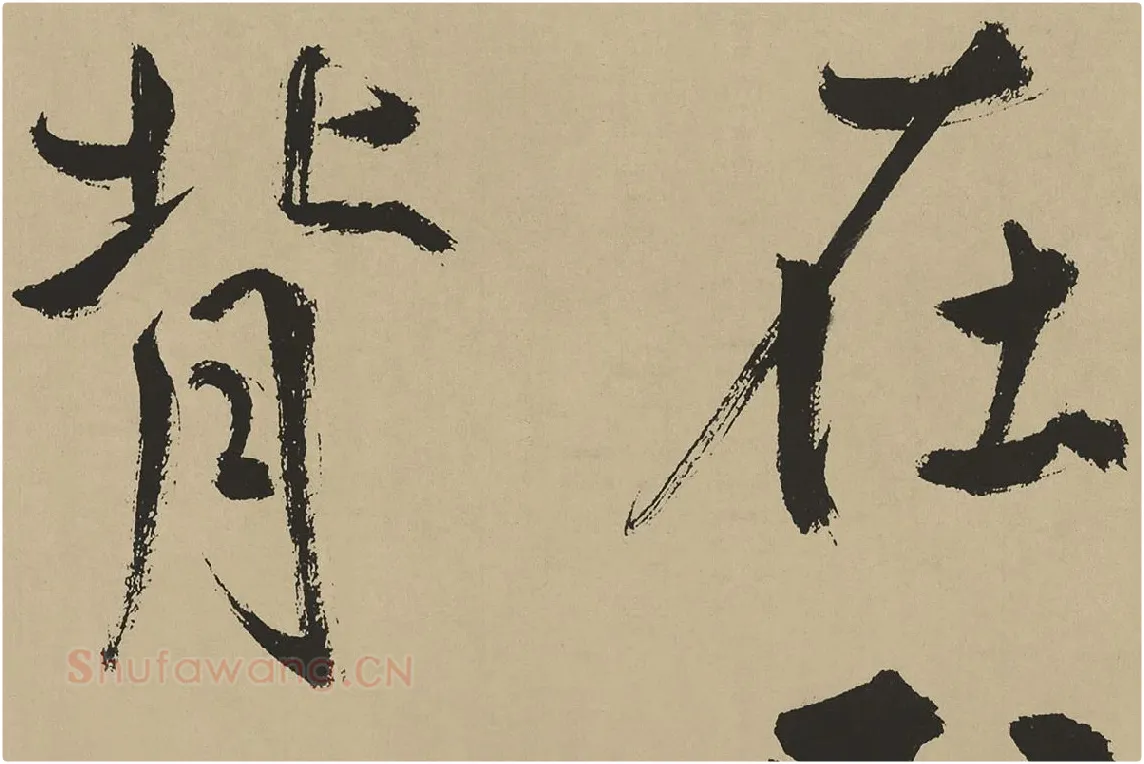 在
背
Shufawang.CN